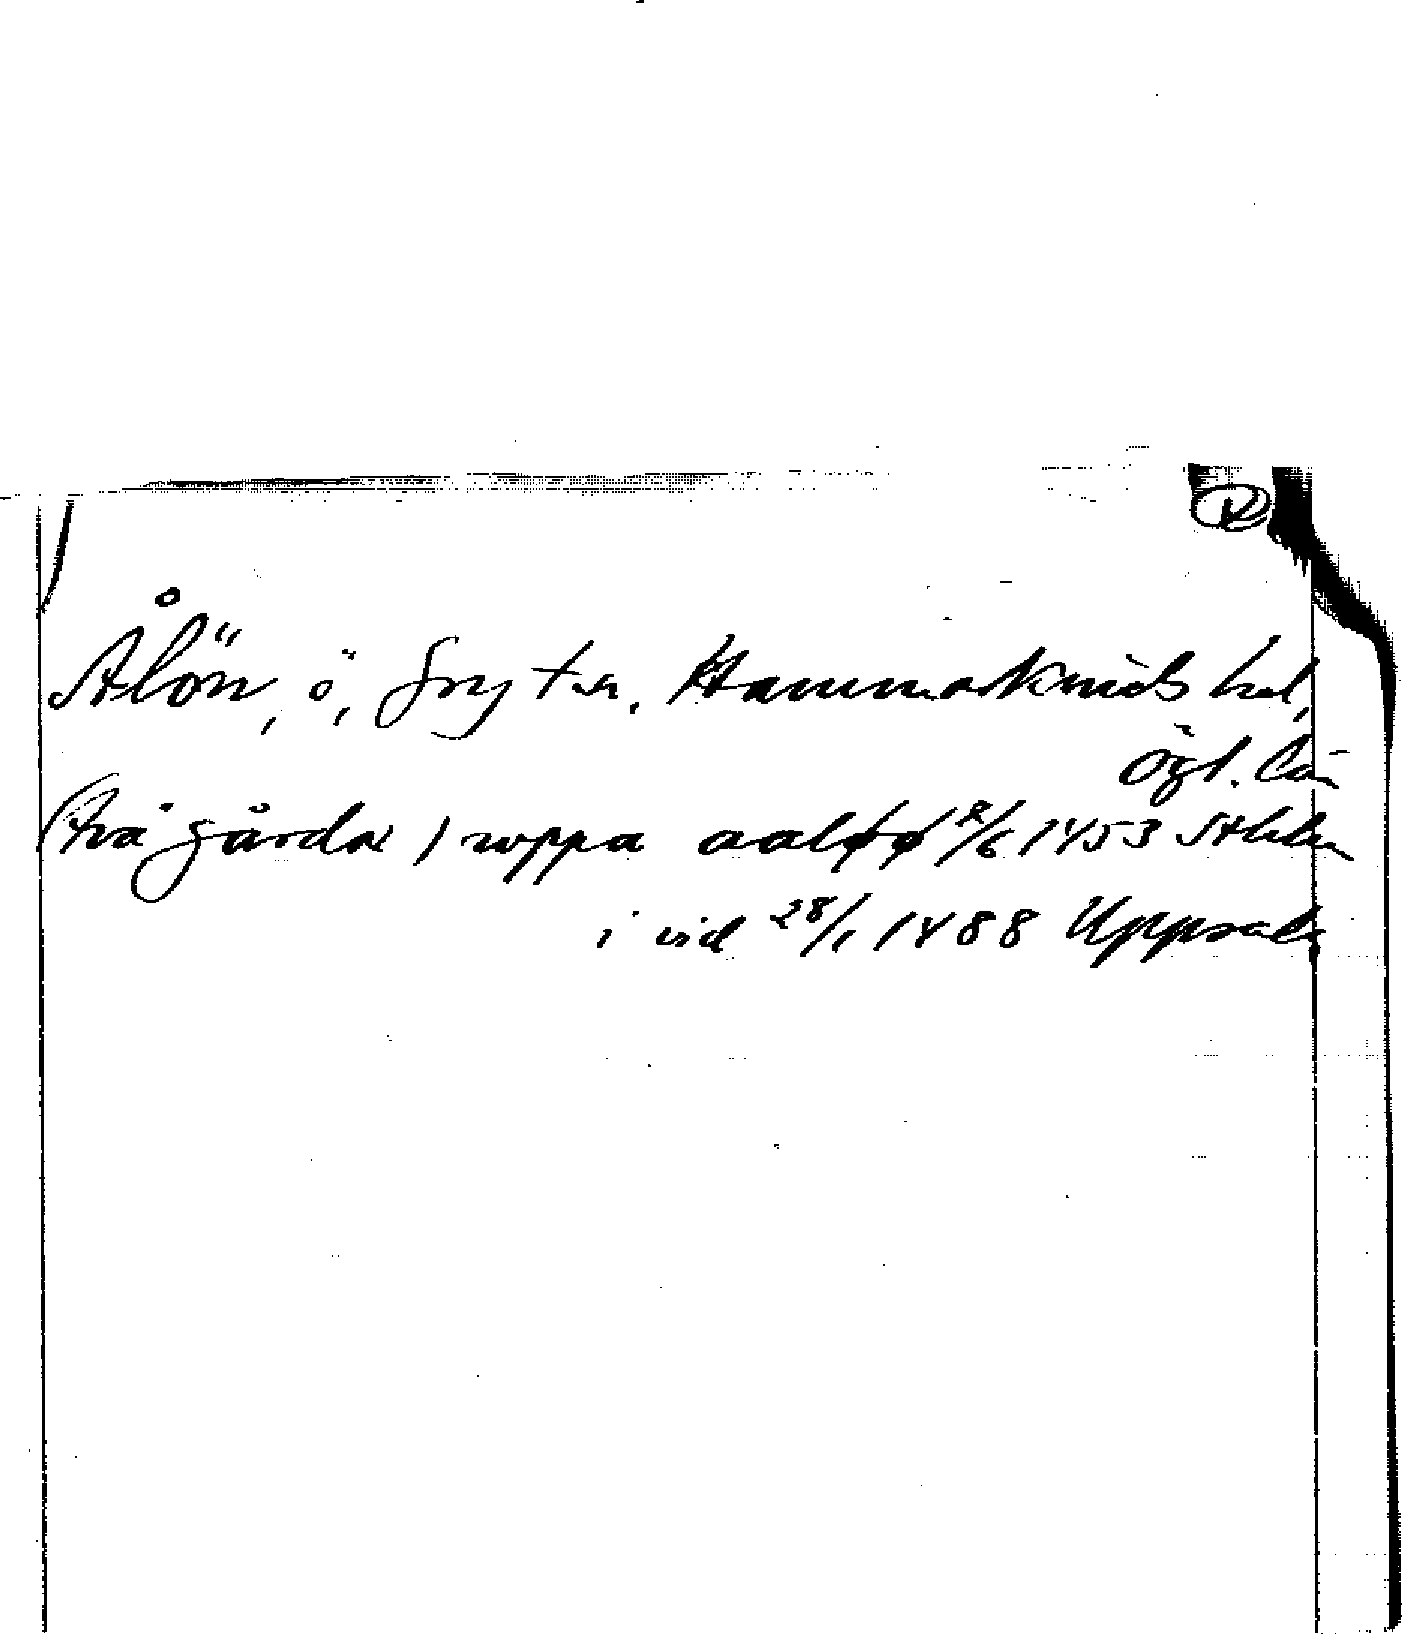 Ⓡ
Ålön, ö, Gryt sn, Hammarkinds hd,
Ögl. län
(två gårdar) uppa aaløø 2/6 1453 Sthlm
i vid 28/1 1488 Uppsala